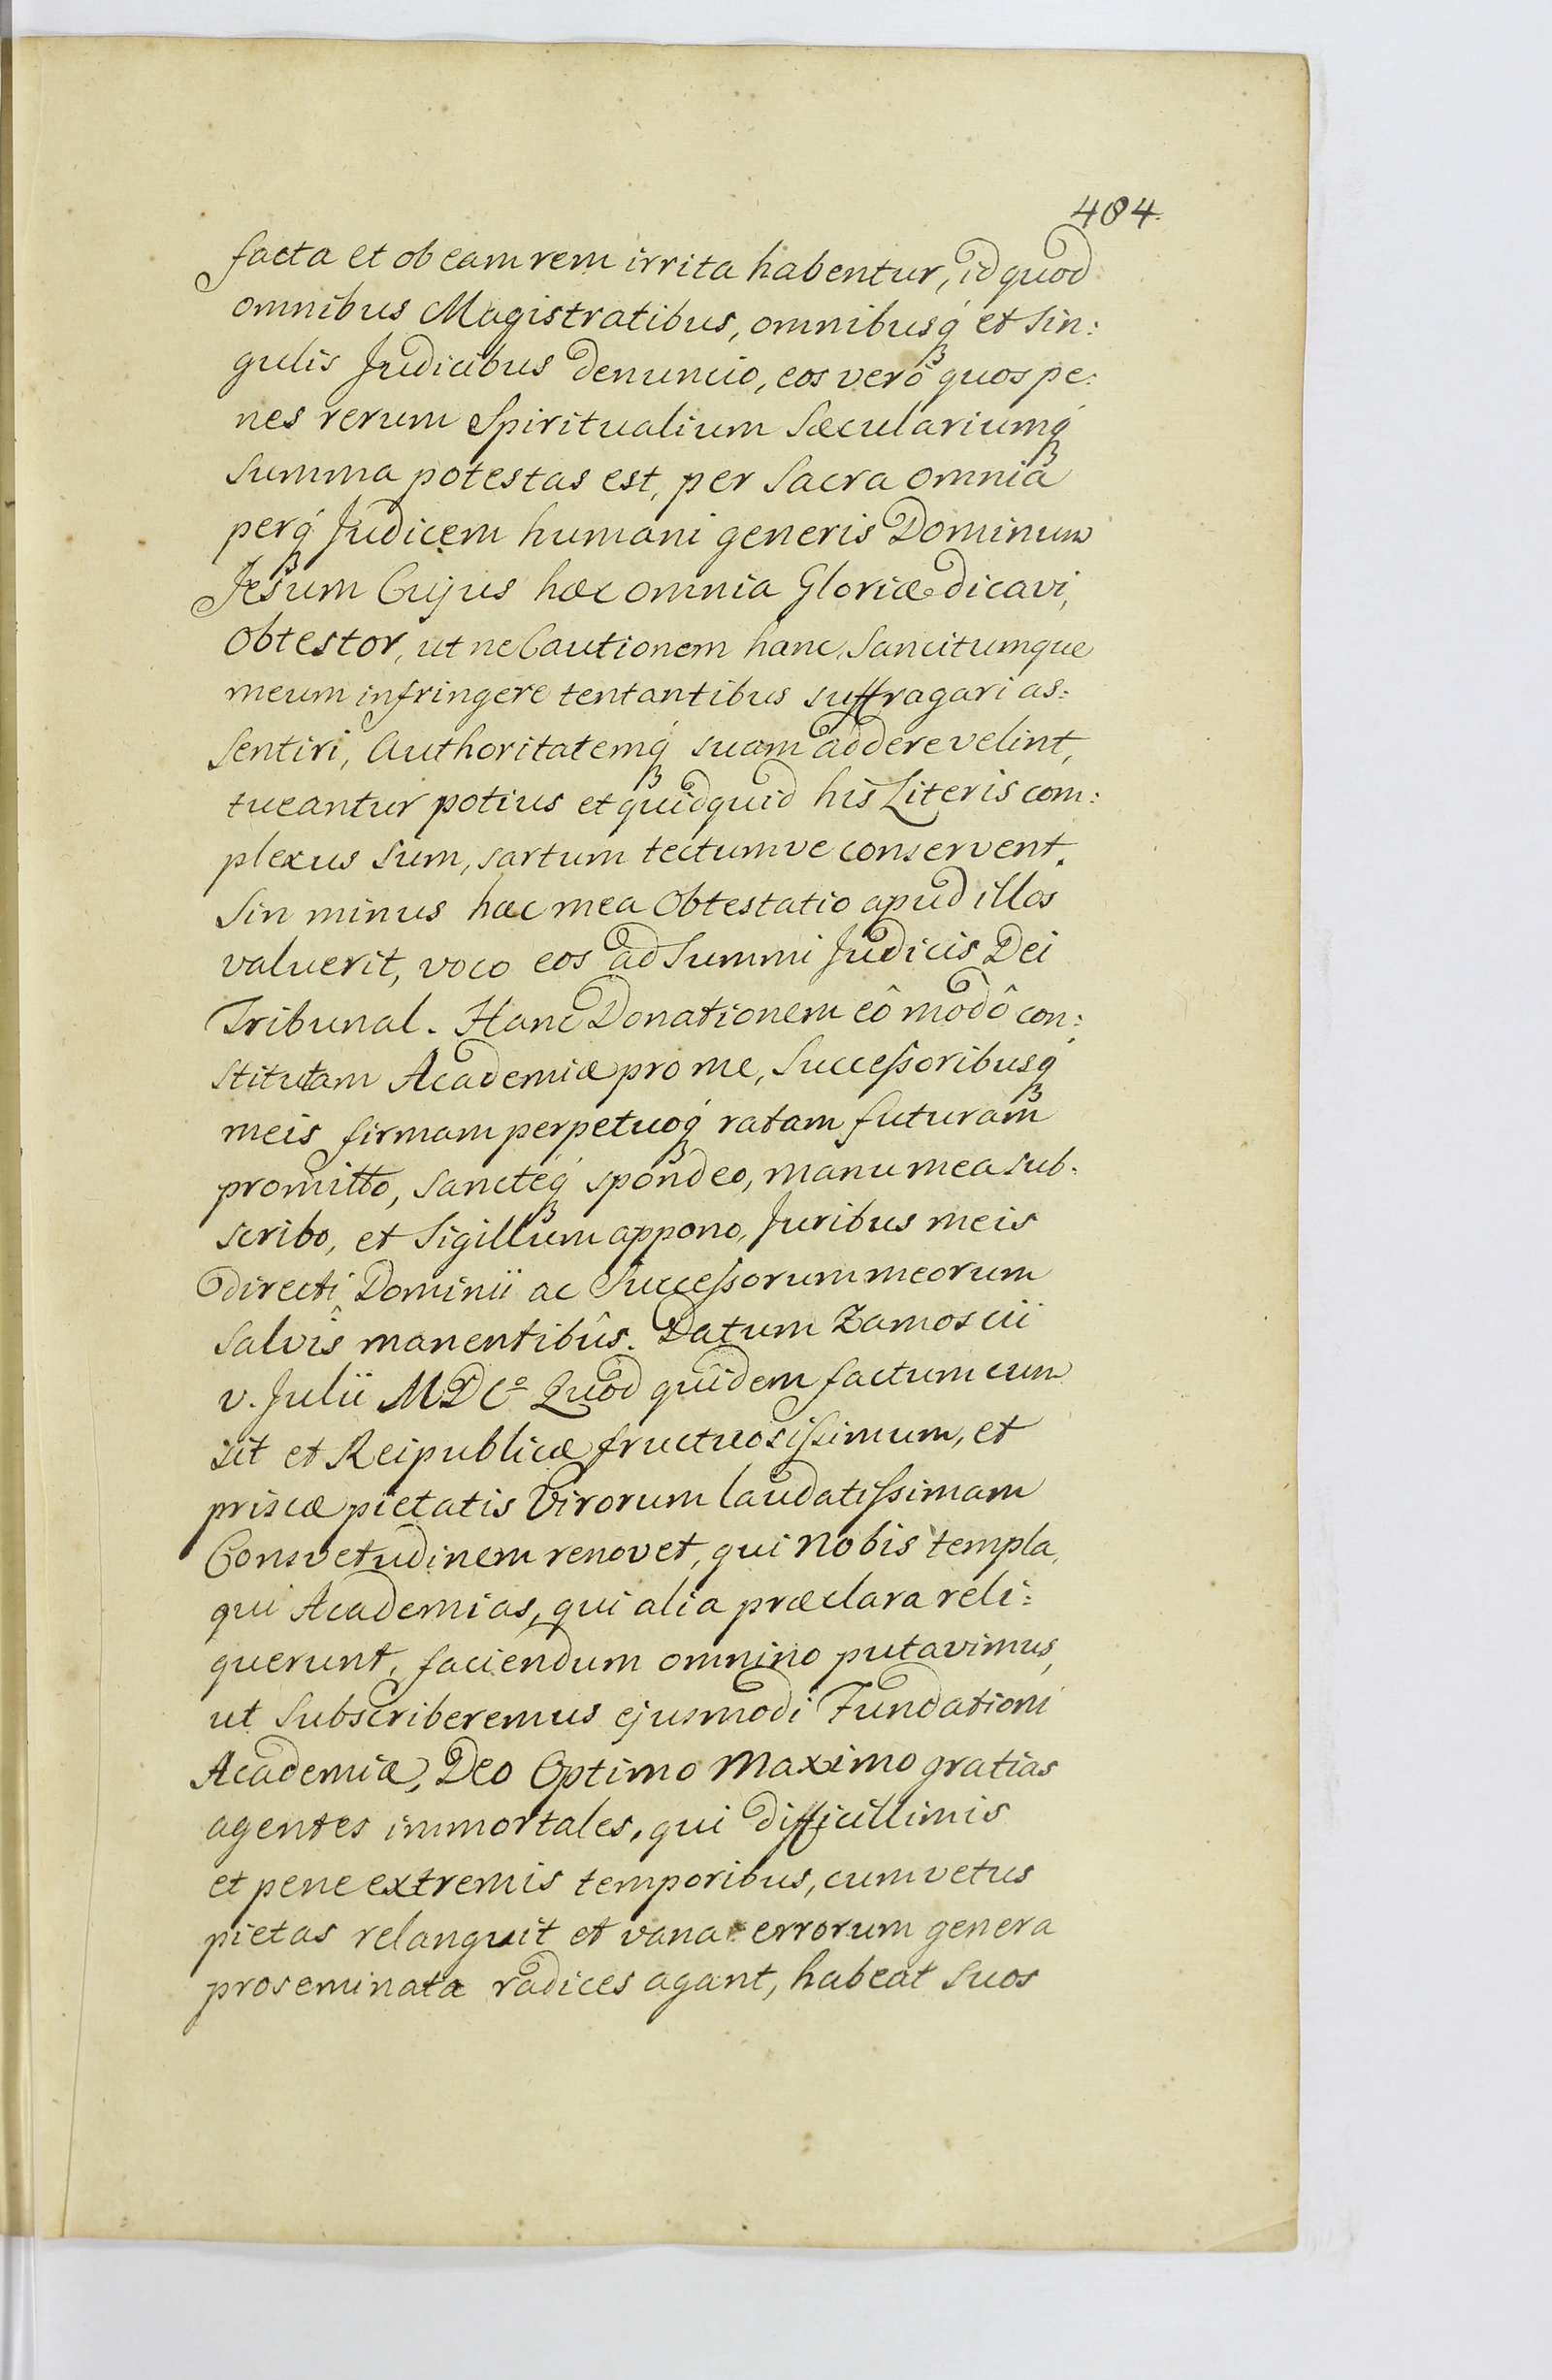 404.
facta et ob eam rem irrita habentur, id quod
omnibus Magistratibus, omnibusq́ et sin:
gulis Judicibus denuncio, eos verô quos pe:
nes rerum Spiritualium Sæculariumq́
summa potestas est, per Sacra omnia
perq́ Judicem humani generis Dominum
Jesum Cujus hæc omnia Gloriæ dicavi,
obtestor, ut ne Cautionem hanc, Sancitumque
meum infringere tentantibus suffragari as:
sentiri, Authoritatemq́ suam addere velint,
tueantur potius et quidquid his Literis com:
plexus sum, sartum tectumve conservent.
Sin minus hæc mea Obtestatio apud illos
valuerit, voco eos ad Summi Judicis Dei
Tribunal. Hanc Donationem eô modô con:
stitutam Academiæ pro me, Successoribusq́
meis firmam perpetuoq́ ratam futuram
promitto, sanctéq́ spondeo, manu mea sub:
scribo, et Sigillum appono, Juribus meis
directi Dominii ac Successorum meorum
salvis manentibûs. Datum Zamoscii
v. Julii MDCº Quod quidem factum cum
sit et Reipublicæ fructuosissimum, et
priscæ pietatis Virorum laudatissimam
Consvetudinem renovet, qui nobis templa,
qui Academias, qui alia præclara reli:
querunt, faciendum omnino putavimus,
ut Subscriberemus ejusmodi Fundationi
Academiæ, Deo Optimo Maximo gratias
agentes immortales, qui difficillimis
et pene extremis temporibus, cum vetus
pietas relanguit et vana errorum genera
proseminata radices agant, habeat suos